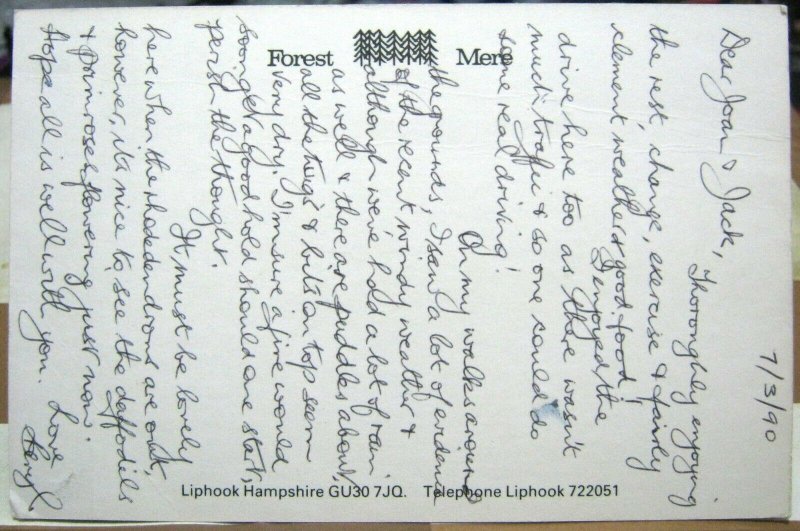 Forest Mere
7/3/90
Dear Joan & Jack,
Thoroughly enjoying
the rest, change, exercise & fairly
clement weather & good food!
I enjoyed the
drive here too as there wasn't
much traffic & so one could do
some real driving!
On my walks around
the grounds, I saw a lot of evidence
of the recent windy weather &
although we've had a lot of rain
as well & there are puddles about,
all the twigs & bits on top seem
very dry. I'm sure a fire would
soon get a good hold should one start,
perish the thought.
It must be lovely
here when the rhodedendrons are out,
however, it's nice to see the daffodils
& primroses flowering just now.
Hope all is well with you. Love
Beryl
Liphook Hampshire GU30 7JQ. Telephone Liphook 722051